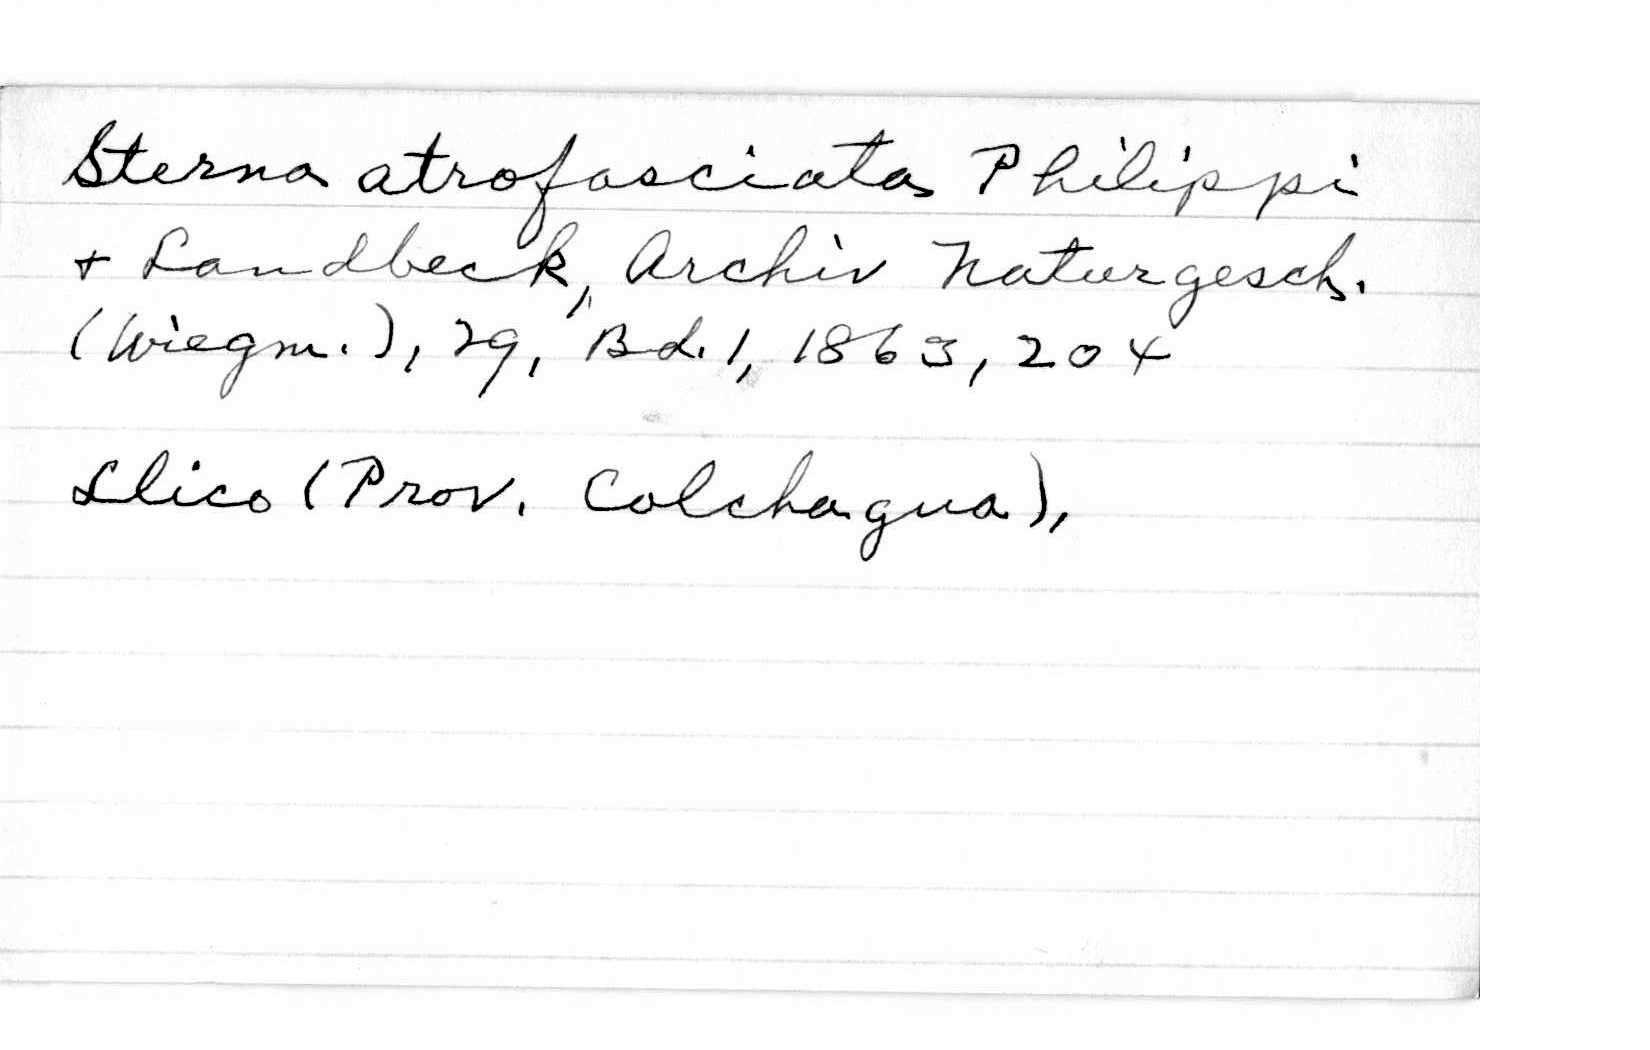 Sterna atrofasciata Philippi
+ Landbeck, Archiv Naturgesch.
(Wiegm.), 29, Bd. 1, 1863, 204
Llico (Prov. Colchagua),